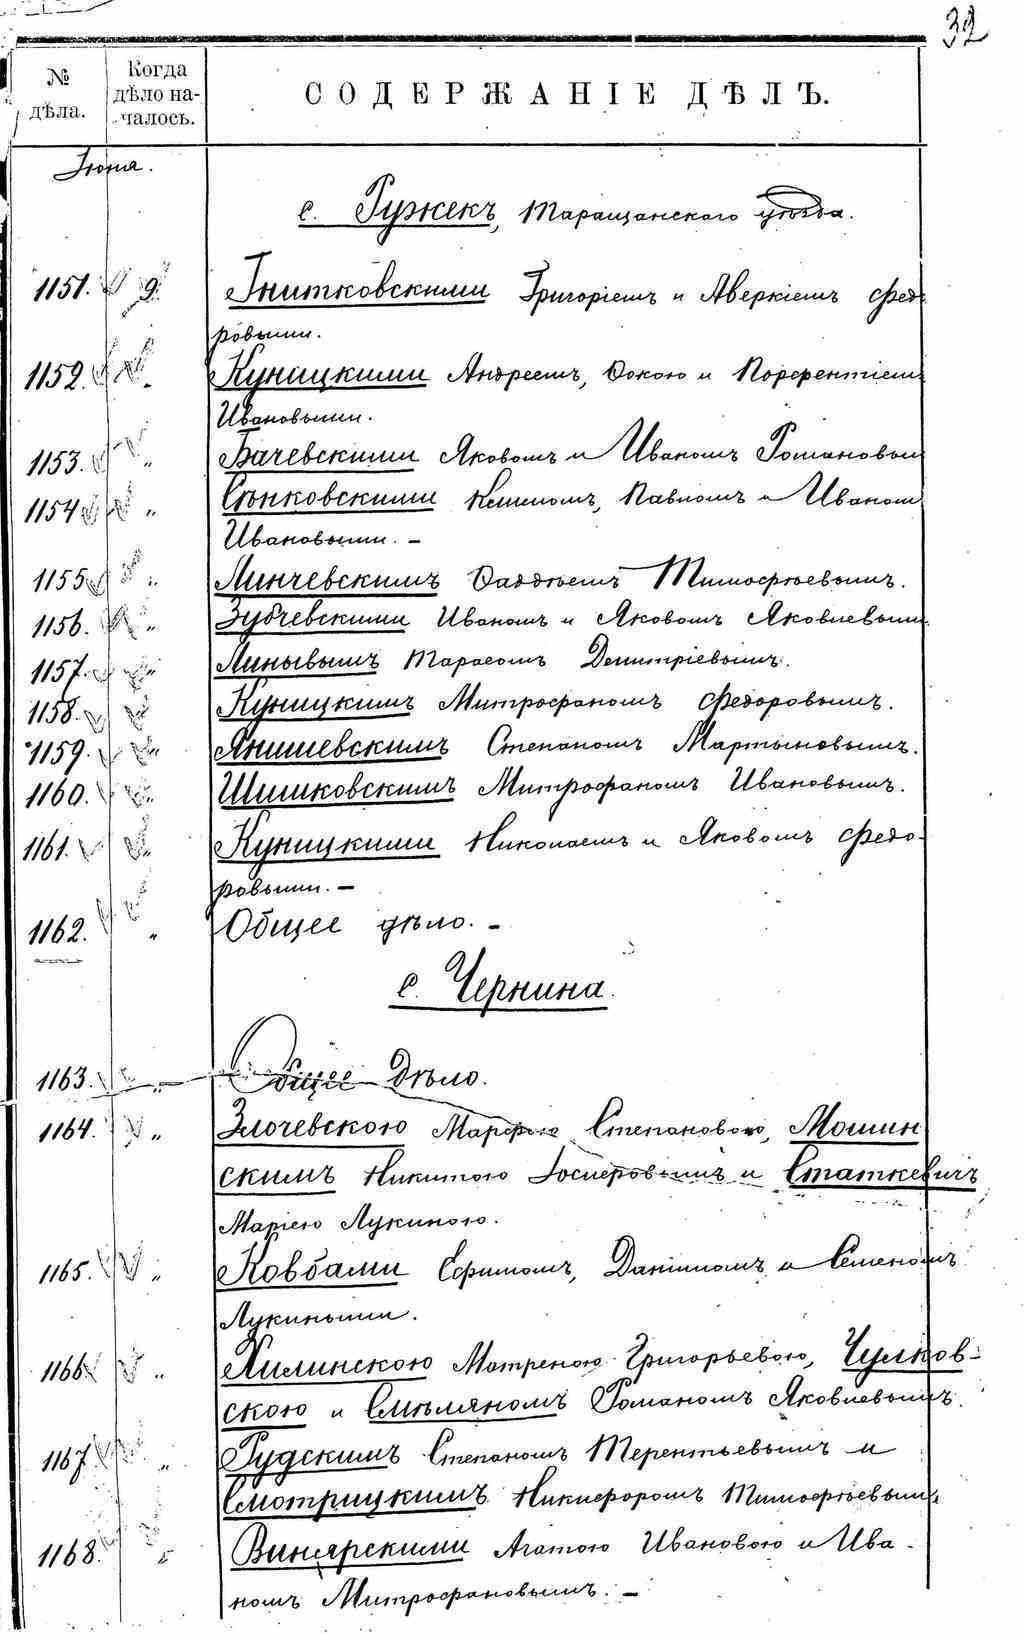 32
№ дѣла. Когда дѣло на- чалось. СОДЕРЖАНІЕ ДѢЛЪ.
Іюня.
с. Ружекъ, Таращанскаго уѣзда.
1151. 9. Гнитковскими Григоріемъ и Аверкіемъ Федо-
ровыми.
1152. „ Куницкими Андреемъ, Фокою и Порфентіемъ
Ивановыми.
1153. „ Бачевскими Яковомъ и Иваномъ Романовым
1154 „ Сѣнковскими Климомъ, Павломъ и Иваном
Ивановыми. –
1155 „ Линчевскимъ Фаддѣемъ Тимофѣевымъ.
1156. „ Зубчевскими Иваномъ и Яковомъ Яковлевыми
1157. „ Линывымъ Тарасомъ Демитріевымъ.
1158. „ Куницкимъ Митрофаномъ Федоровымъ.
1159. „ Янишевскимъ Степаномъ Мартыновымъ.
1160. „ Шишковскимъ Митрофаномъ Ивановымъ.
1161. „ Куницкими Николаемъ и Яковомъ Федо-
ровыми. –
1162. „ Общее дѣло. –
с. Чернина.
1163. „ Общее Дѣло.
1164. „ Злочевскою Марфою Степановою, Мошин
скимъ Никитою Іосиеровымъ и Статкевичъ
Маріею Лукиною.
1165. „ Ковбами Ефимомъ, Даніиломъ и Семеномъ
Лукиными.
1166 „ Хилинскою Матреною Григорьевою, Чулков-
скою и Смѣляномъ Романомъ Яковлевымъ.
1167 „ Рудскимъ Степаномъ Терентьевымъ и
Смотрицкимъ Никифоромъ Тимофѣевыми
1168. „ Винярскими Агатою Ивановою и Ива-
номъ Митрофановымъ. –